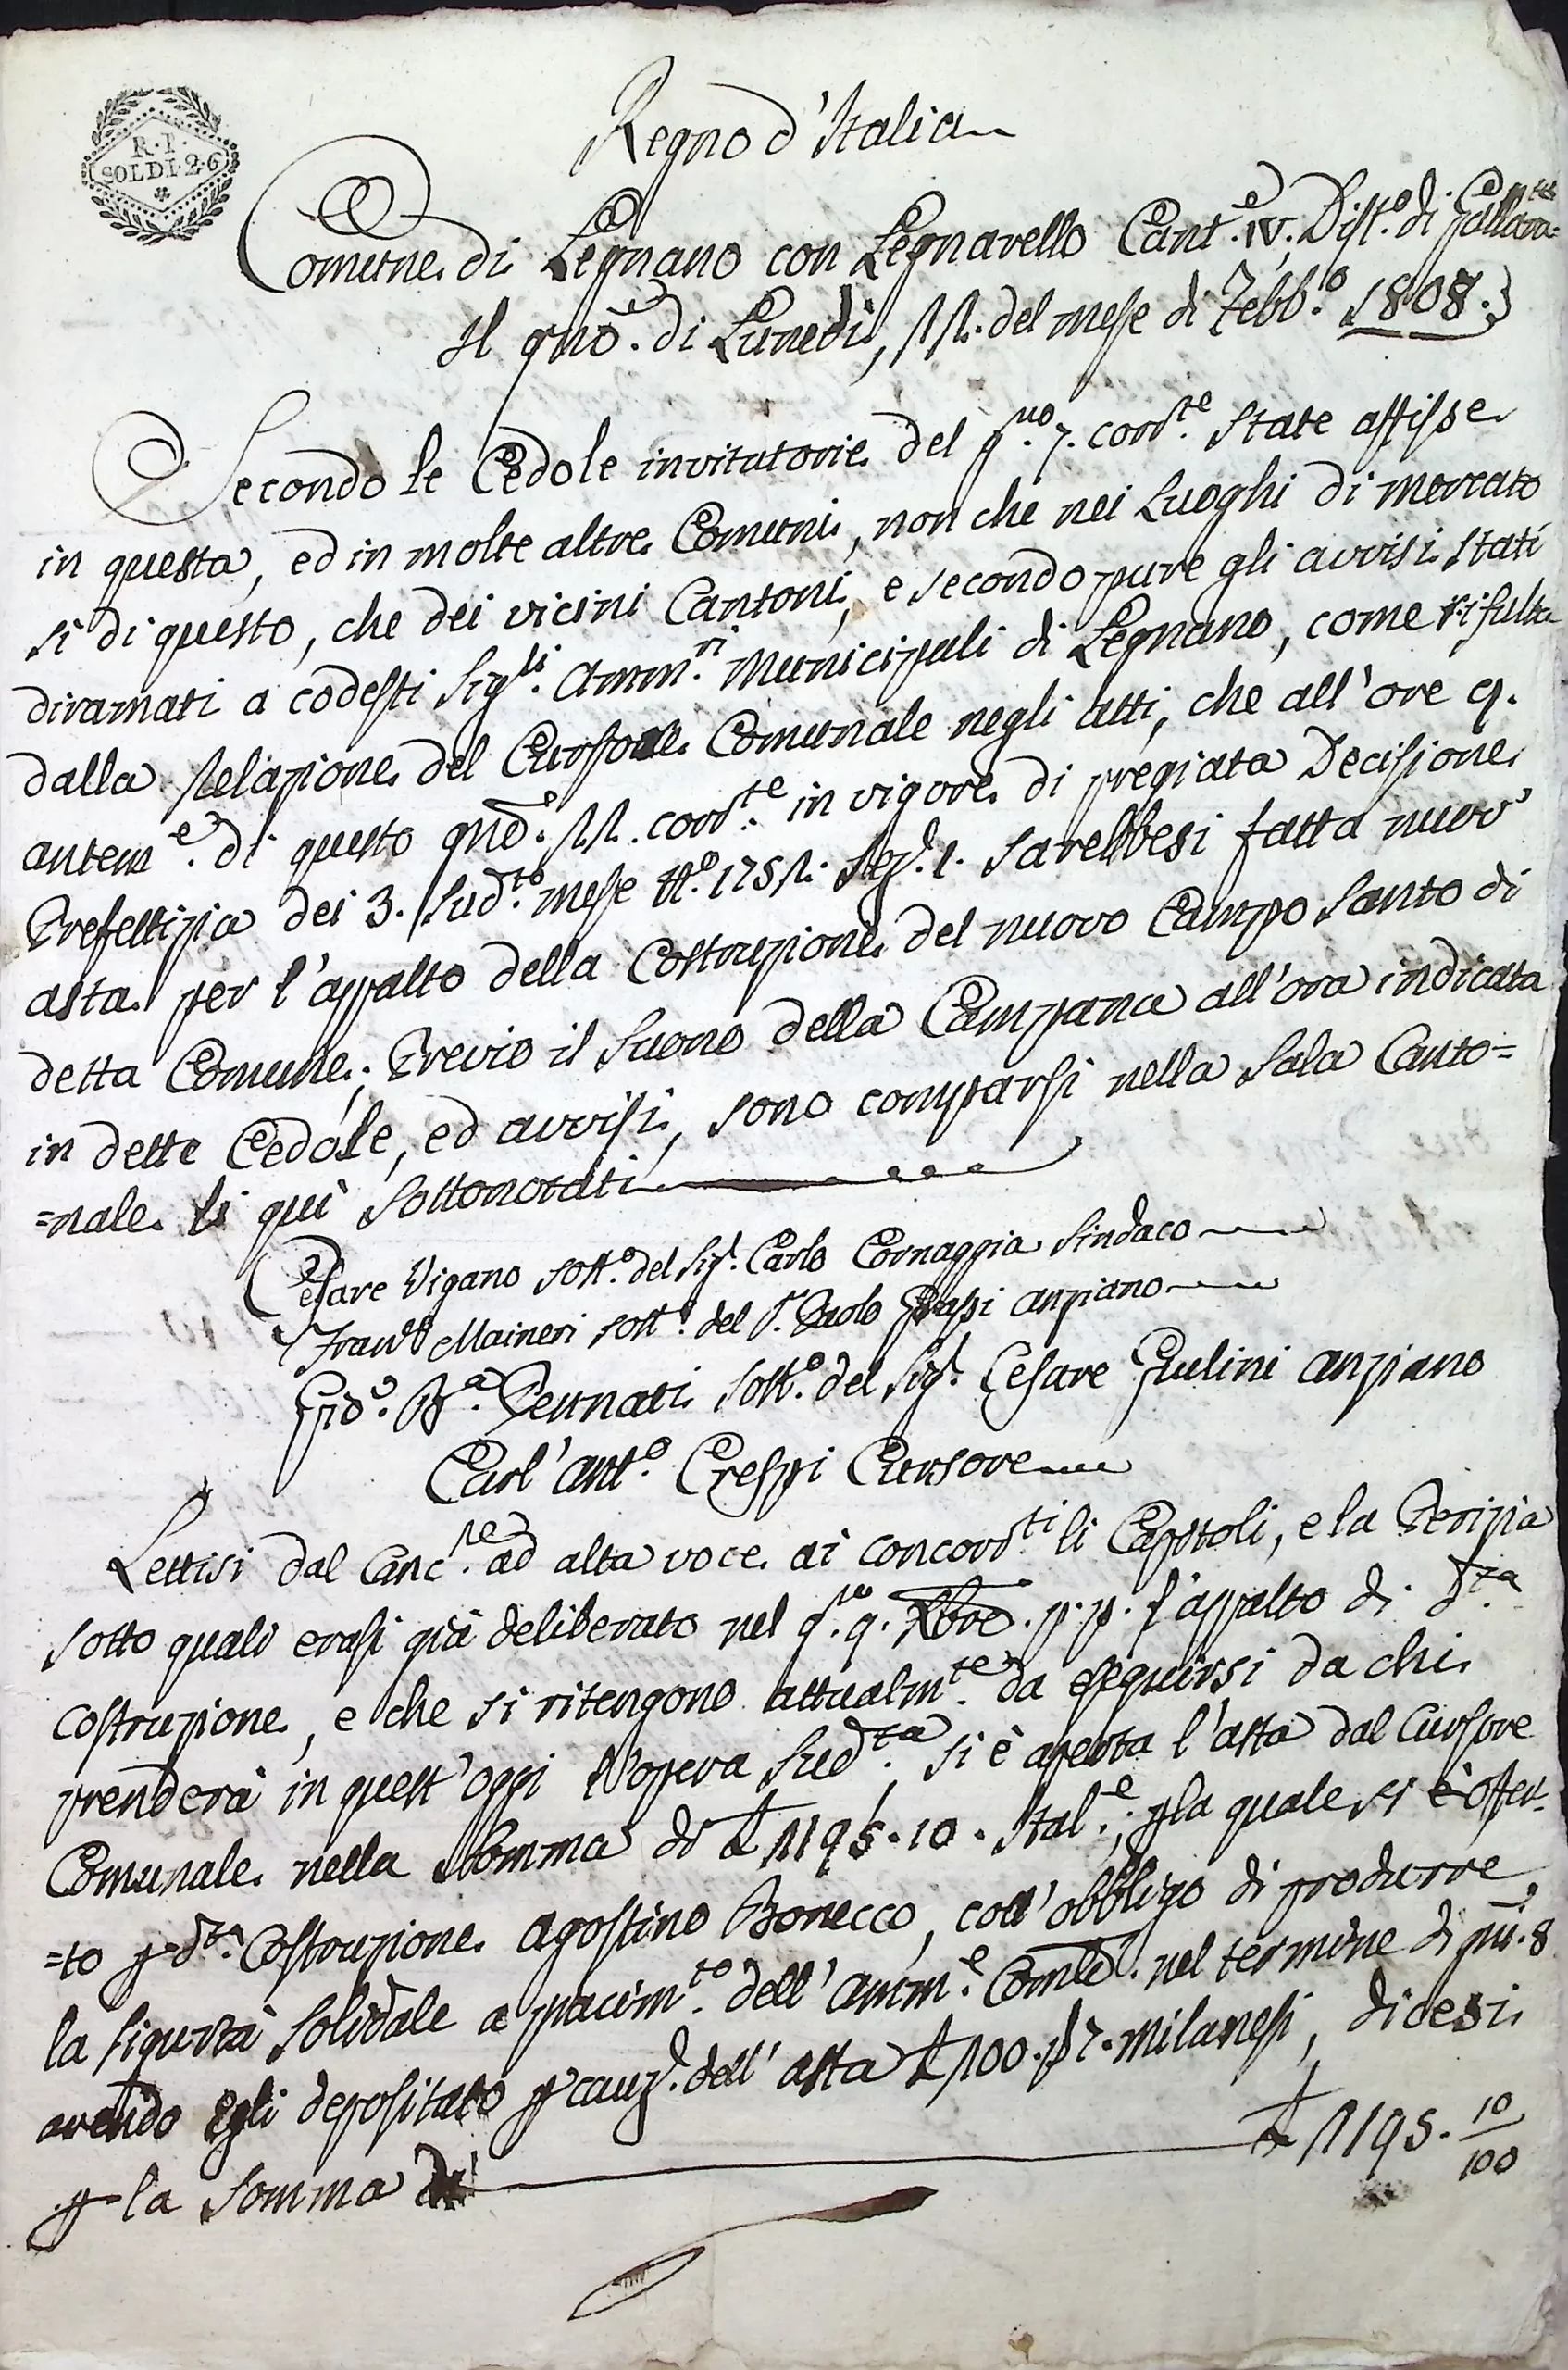 R. I.
SOLDI 2.6
Regno d'Italia
Comune di Legnano con Legnarello Cant.e IV. Dist.o di Gallara=te
Il gno. di Lunedì, 11. del mese di Febb.o 1808.
Secondo le Cedole invitatorie del g.no 7. corr.te state affisse
in questa, ed in molte altre Comuni, non che nei Luoghi di mercato
sì di questo, che dei vicini Cantoni, e secondo pure gli avvisi stati
diramati a codesti Sig.li Amm.ri Municipali di Legnano, come risulta
dalla Relazione del Cursore Comunale negli atti, che all'ore 9.
antem.e di questo gno. 11. corr.te in vigore di pregiata Decisione
Prefettizia dei 3. sud.to mese N.o 1751. Sez. 1. sarebbesi fatta nuov'
asta per l'appalto della Costruzione del nuovo Campo Santo di
detta Comune; Previo il suono della Campana all'ora indicata
in dette Cedole, ed avvisi, sono comparsi nella Sala Canto=
=nale li quì sottonotati
Cesare Vigano sost.o del Sig.r Carlo Cornaggia Sindaco
Fran.co Maineri sost.o del S.r Paolo Grassi anziano
Gio. B.a Pennati sost.o del Sig.r Cesare Giulini anziano
Carl'Ant.o Crespi Cursore
Lettisi dal Canc.re ad alta voce ai concorr.ti li Capitoli, e la Perizia
sotto quali erasi già deliberato nel g.no 9. Xbre. p. p. l'appalto di d.ta
costruzione, e che si ritengono attualm.te da eseguirsi da chi
prenderà in quest'oggi l'opera sud.ta, si è aperta l'asta dal Cursore
Comunale nella somma di £ 1195.10. Ital.e; p la quale si è offer=
=to p d.ta Costruzione Agostino Bonecco, coll'obbligo di produrre
la sigurtà solidale a piacim.to dell'Amm.e Comle. nel termine di gni. 8
avendo egli depositato p cauz.e dell'asta £ 100. milanesi, dicesi
p la somma di £ 1195. 10/100